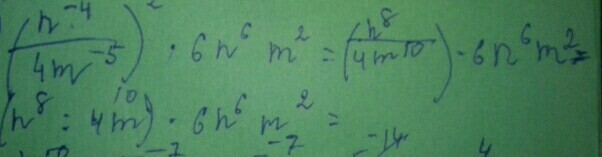 (n⁻⁴/4m⁻⁵)² · 6n⁶m² = (n⁸/4m¹⁰) · 6n⁶m² =
(n⁸ : 4m¹⁰) · 6n⁶m² =